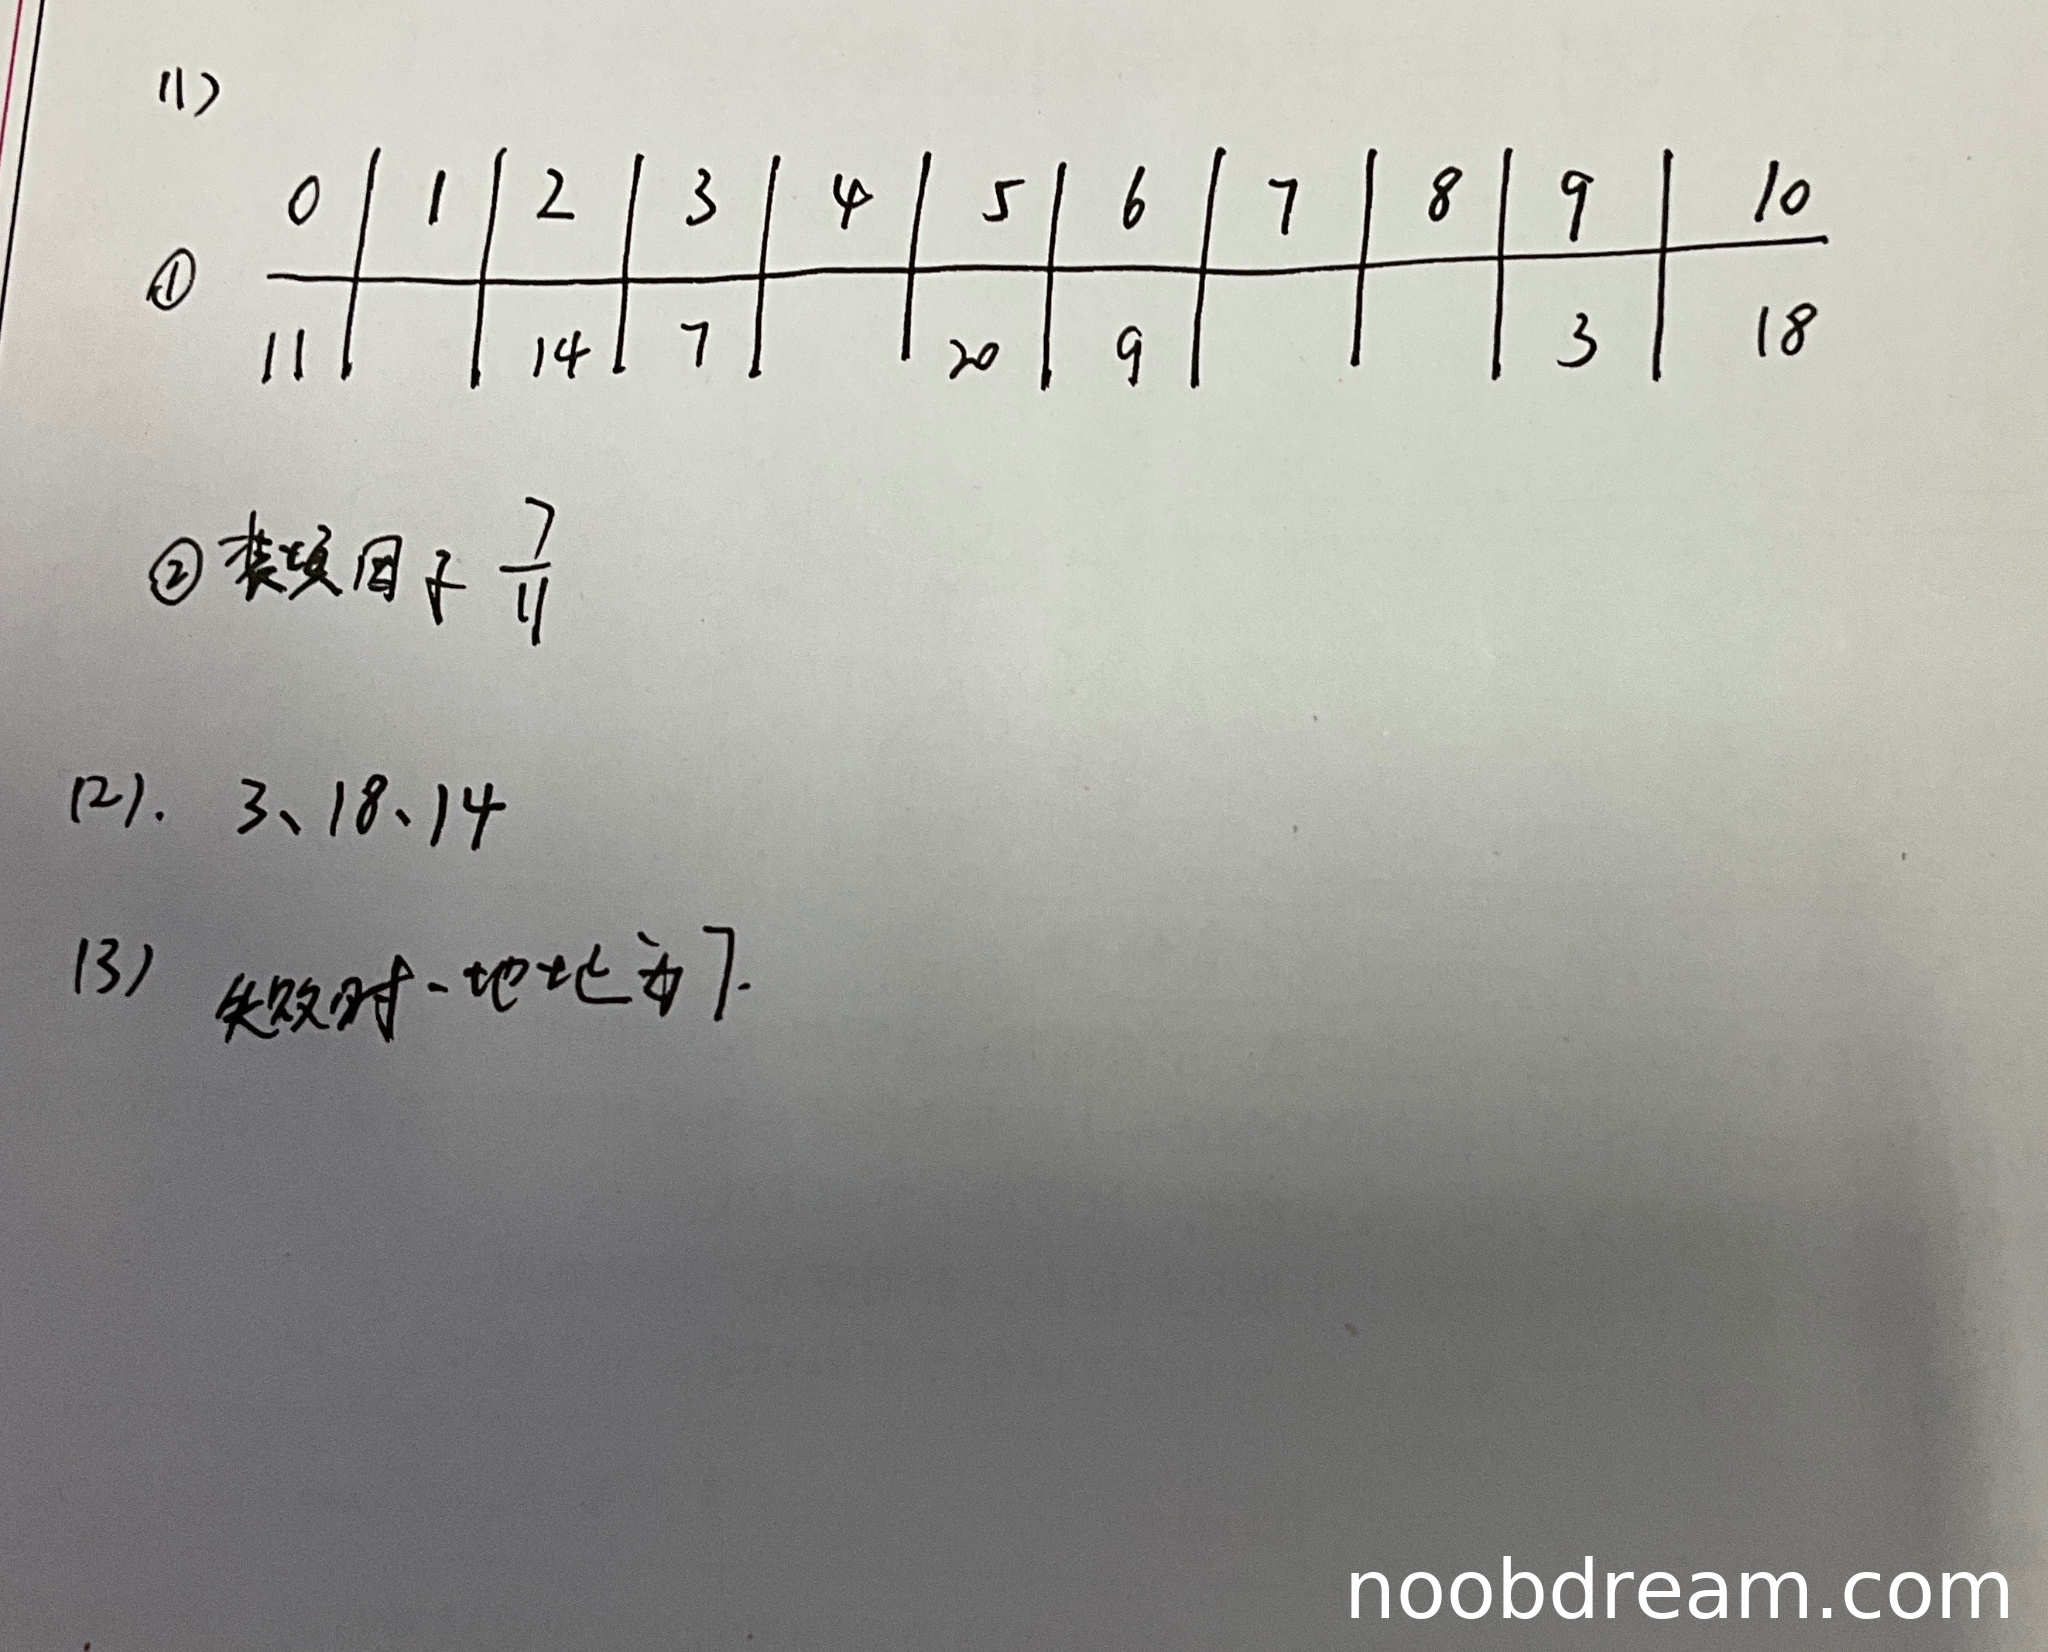 (1)
0 1 2 3 4 5 6 7 8 9 10
①
11 14 7 20 9 3 18
②装填因子 7/11
(2). 3、18、14
(3) 失败时-地址为7.
noobdream.com